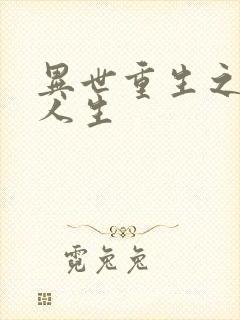 異世重生之
人生
霓兔兔